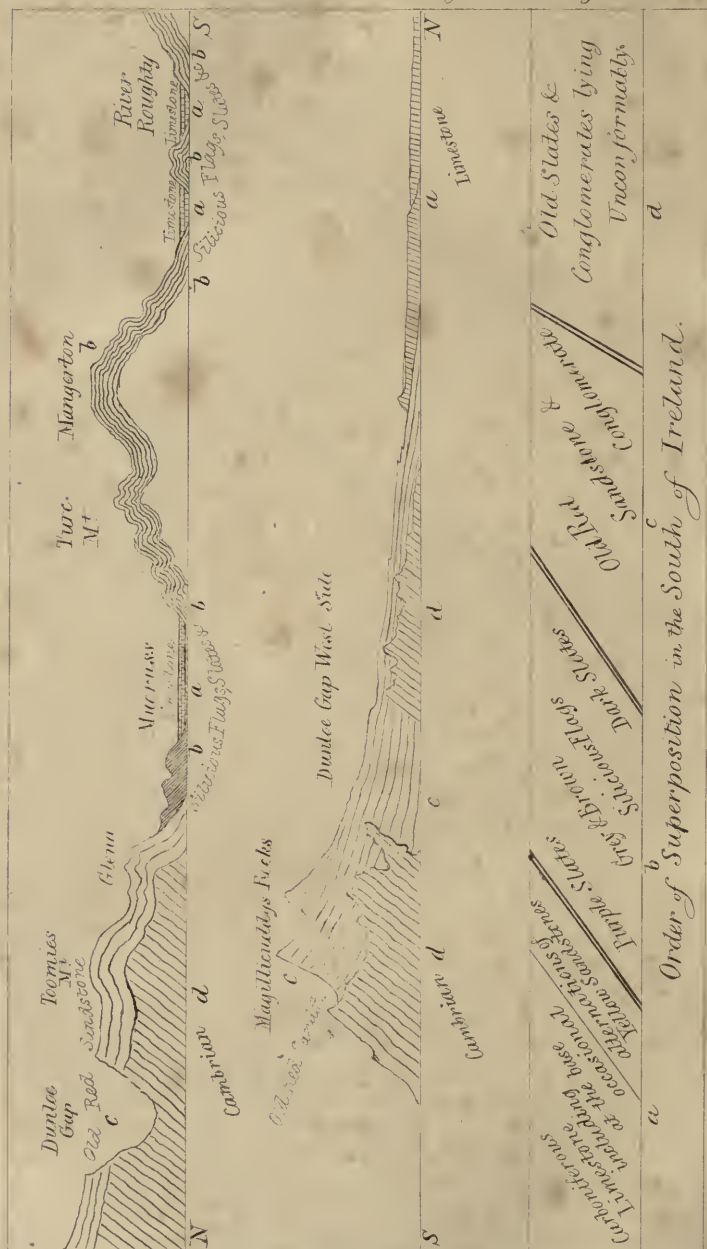 Dunloe
Gap
Old Red Sandstone
c
Toomies
Mt
Glenn
Mucruss
Limestone
Turc
Mt
Mangerton
b
River
Roughty
Limestone
Limestone
N
Cambrian
d
b
a
b
b
a
b
a
b
S
Silicious Flags, Slates &
Silicious Flags, Slates &c
Magillicuddys Reeks
c
Old Red
Dunloe Gap West Side
S
Cambrian
d
c
d
a
Limestone
N
Carboniferous
Limestone
including base
at the occasional
alternations of
Yellow Sandstones
Purple Slates
Grey & Brown
Silicious Flags
Dark Slates
Old Red
Sandstone &
Conglomerate
Old Slates &
Conglomerates lying
Unconformably.
a
b
c
d
Order of Superposition in the South of Ireland.